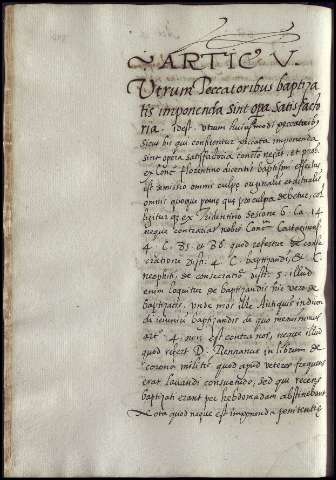 ARTIC V.
Utrum Peccatoribus baptiza
tis imponenda sint opa satisfacto
ria. idest. utrum huiusmodi peccatorib9
sicut his qui confitentur peccata imponenda
sint opera satisfactoria concto negat, et prob
ex Conc. florentino dicente baptismi effectus
est remissio omnis culpe originalis et actualis
omnis quoque pene que pro culpa debetur, col
ligitur qz ex Tridentino sessione 6. Ca. 14
neque contrarius nobis Conc. Cartaginens
4. C. 85. et 86. quod refertur de conse
cratione Dist. 4. C. baptizandi, et C.
neophiti, de consecratione Dist. 5. illud
enim loquitur de baptizandis hic vero de
baptizatis. unde mos ille Antiquis induce
di ieiunii baptizandis de quo meminimus
art. 4. non est contra nos, neque illud
quod refert D. Renanus in librum de
corona militis quod apud veteres frequens
erat lavandi consuetudo, sed qui recens
baptizati erant per hebdomadam abstinebant
Nota quod neque est imponenda penitentie